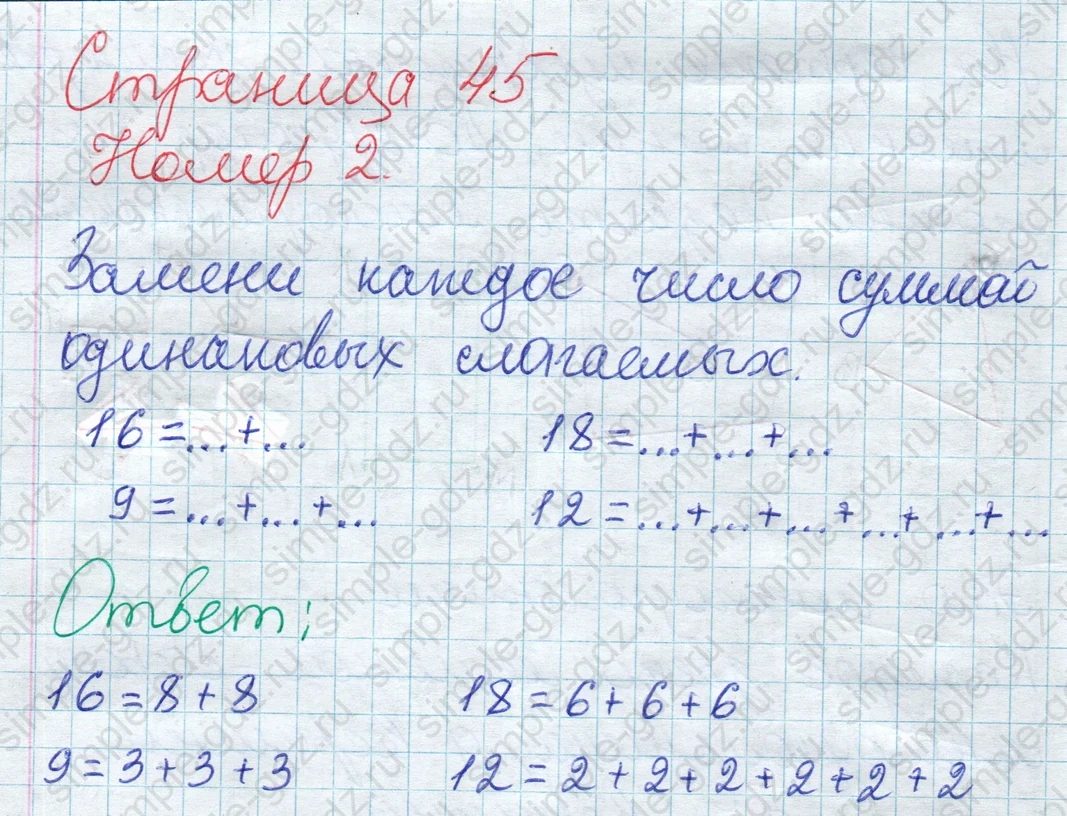 Страница 45
Номер 2.
Замени каждое число суммой
одинаковых слагаемых.
16 = ... + ...    18 = ... + ... + ...
9 = ... + ... + ...    12 = ... + ... + ... + ... + ... + ...
Ответ:
16 = 8 + 8    18 = 6 + 6 + 6
9 = 3 + 3 + 3    12 = 2 + 2 + 2 + 2 + 2 + 2
simple-gdz.ru